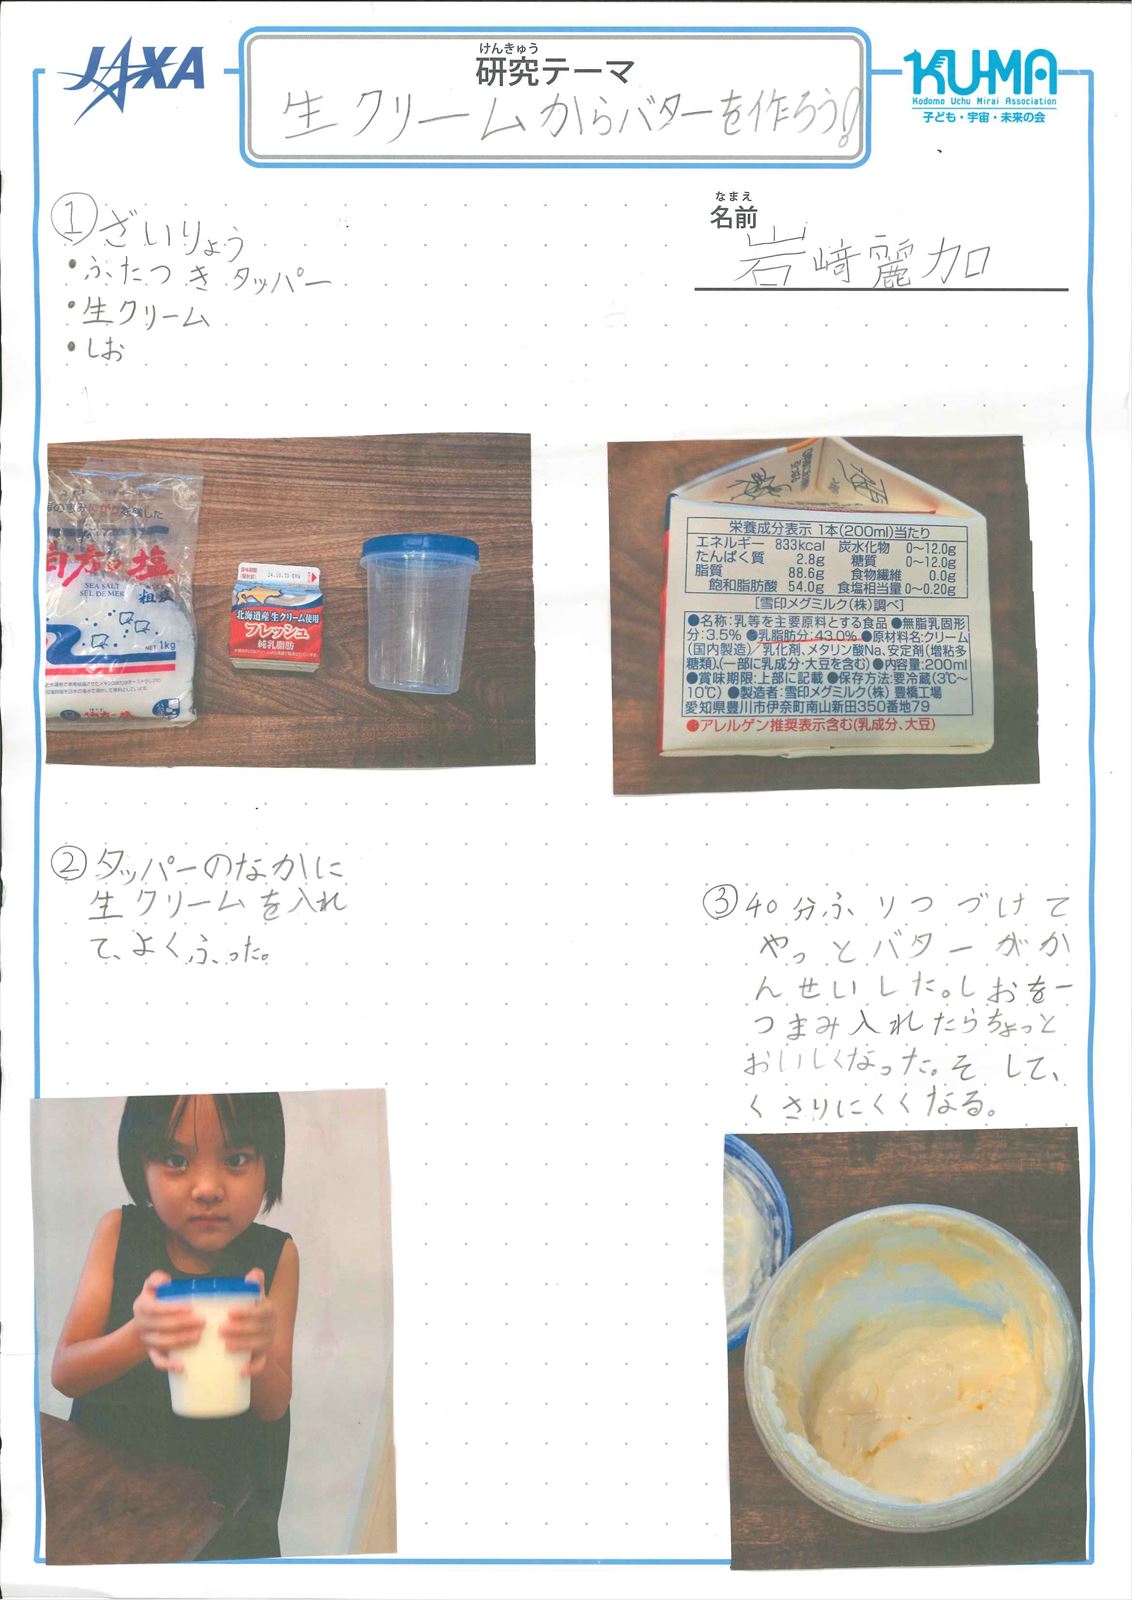 JAXA
けんきゅう
研究テーマ
生クリームからバターを作ろう!
KU-MA
Kodomo Uchu Mirai Association
子ども・宇宙・未来の会
なまえ
名前
岩﨑麗加
①ざいりょう
・ふたつきタッパー
・生クリーム
・しお
海の恵みにがりを残した
南方の塩
SEA SALT
SEL DE MER
粗塩
NET 1kg
北海道産生クリーム使用
フレッシュ
純乳脂肪
栄養成分表示 1本(200ml)当たり
エネルギー 833kcal 炭水化物 0~12.0g
たんぱく質 2.8g 糖質 0~12.0g
脂質 88.6g 食物繊維 0.0g
飽和脂肪酸 54.0g 食塩相当量 0~0.20g
[雪印メグミルク(株)調べ]
●名称:乳等を主要原料とする食品 ●無脂乳固形
分:3.5% ●乳脂肪分:43.0% ●原材料名:クリーム
(国内製造)/乳化剤、メタリン酸Na、安定剤(増粘多
糖類)、(一部に乳成分・大豆を含む) ●内容量:200ml
●賞味期限:上部に記載 ●保存方法:要冷蔵(3℃~
10℃) ●製造者:雪印メグミルク(株) 豊橋工場
愛知県豊川市伊奈町南山新田350番地79
●アレルゲン推奨表示含む(乳成分、大豆)
②タッパーのなかに
生クリームを入れ
て、よくふった。
③40分ふりつづけて
やっとバターがか
んせいした。しおを一
つまみ入れたらちょっと
おいしくなった。そして、
くさりにくくなる。